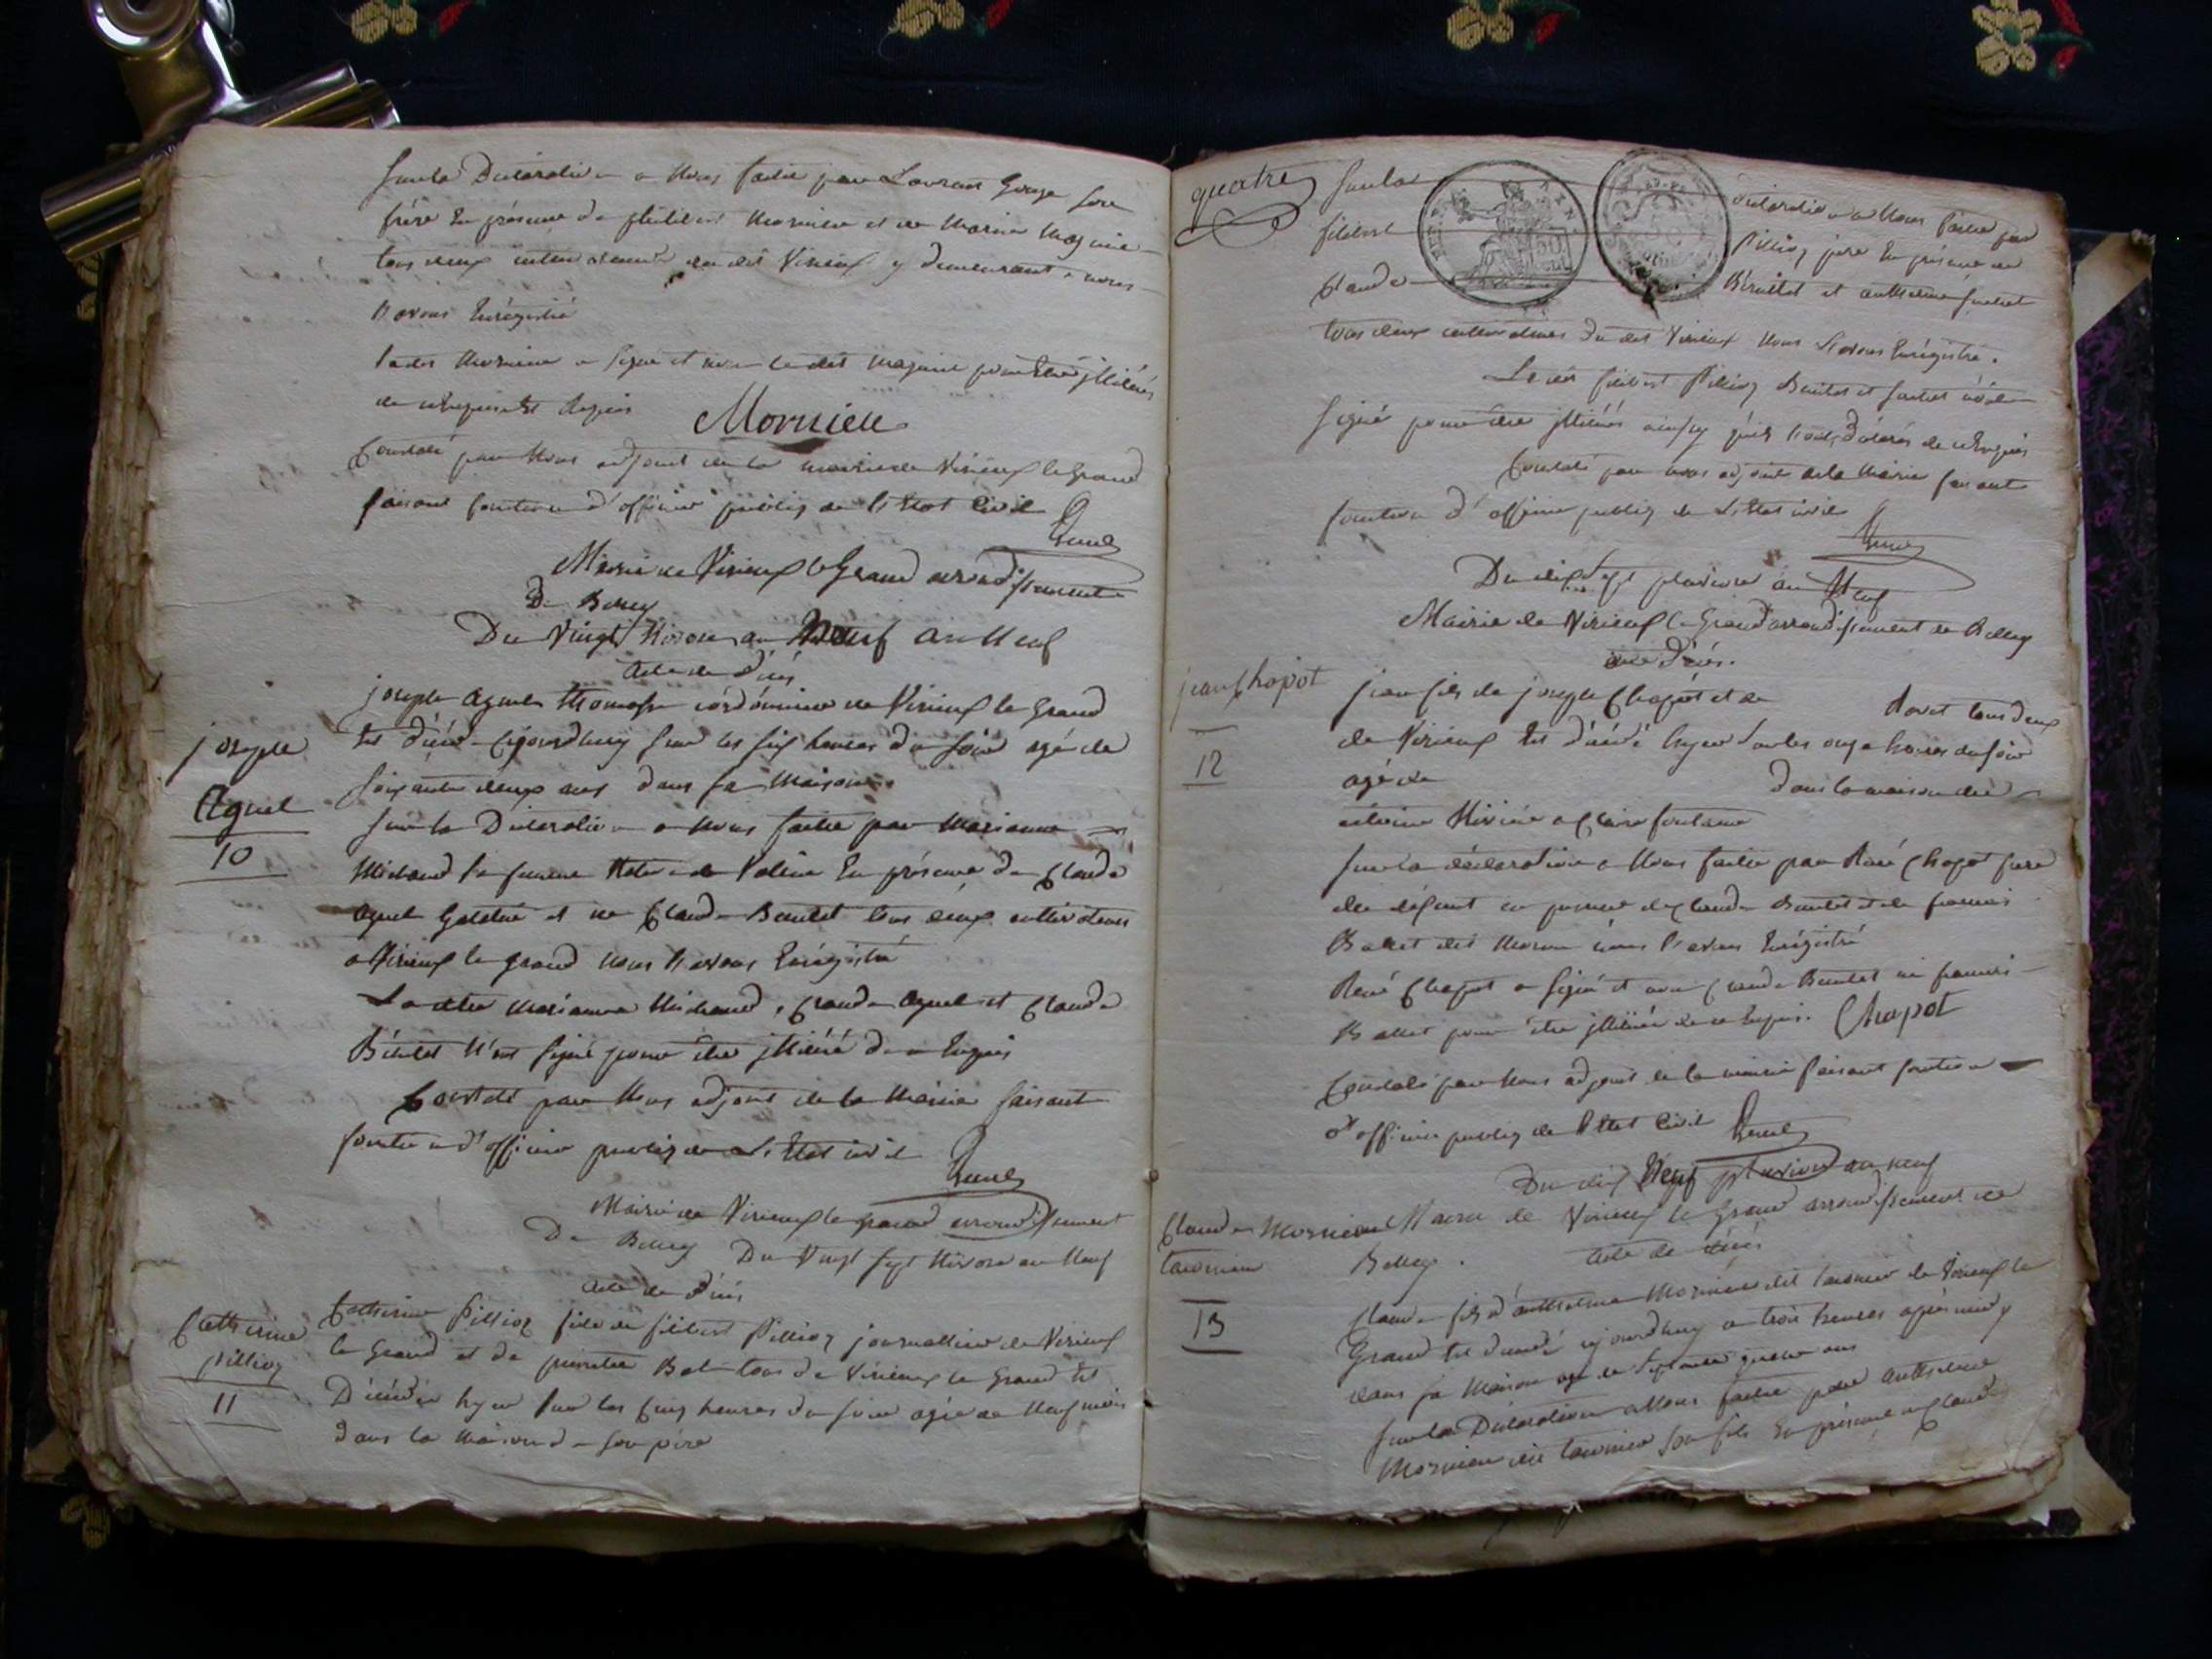 Sur la Déclaration a Nous faitte par Laurant George son
frère En présence de philibert Mornieu et de Marin Magnin
tous deux cultivateurs du dit Virieux y demeurant nous
l'avons Enrégistré
Ledit Mornieu a signé et non le dit Magnin pour Etre jlliteré
de ce Enquis Et Requis
Mornieu
Constaté par Nous adjoint de la mairie de Virieux le grand
faisant fonction d'officier publiq de l'Etat Civil
Mairie de Virieux le Grand arrondissement
De Belley
Du Vingt Nivose an Neuf an Neuf
Acte de Décés
joseph
Aguel
10
joseph Aguel Thomasse cordonnier de Virieux le Grand
Est décédé aujourdhuy sur les six heures du soir agé de
soixante deux ans dans sa Maison
sur la Déclaration a Nous faitte par Marianne
Michaud sa femme En présence de Claude
Aguel et de Claude Beulet tous deux cultivateurs
a Virieux le grand nous l'avons Enregistré
Laditte Marianne Michaud, Claude Aguel et Claude
Béulet N'ont signé pour être jlliteré de ce Enquis
Constaté par Nous adjoint de la Mairie faisant
fonction d'officier publiq de L'Etat civil
Mairie de Virieux le grand arrondissement
De Belley Du Vingt sept Nivose an Neuf
Acte de Décés
Catherine
pillioz
11
Catherine Pillioz fille de filibert Pillioz journallier de Virieux
le Grand et de tous de Virieux le Grand Est
Décédée hyer sur les Cinq heures du soir agée de Neuf mois
dans la Maison de son père
quatre
sur la déclaration a Nous faitte par
filibert Pillioz père En présence de
Claude Béulet et anthelme
tous deux cultivateurs du dit Virieux Nous L'avons Enrégistré.
Ledit filibert Pillioz Beulet et
signé pour être jlliterés ainsy qu'ils l'ont déclarés de ce Enquis
Constaté par nous adjoint de la Mairie faisant
fonction d'officier publiq de L'Etat civil
Du dix sept pluviose an Neuf
Mairie de Virieux le Grand arrondissement de Belley
acte Décés.
jean Chapot
12
jean fils de joseph Chapot et de tous deux
de Virieux Est décédé hyer sur les onze heures du soir
agé de dans la maison de
a Claire fontaine
sur la déclaration a Nous faitte par René Chapot frère
du défunt en présence de Claude Beulet et de francois
Ballet nous l'avons Enrégistré
René Chapot a signé et non Claude Beulet ni francois
Ballet pour être jlliteré de ce Enquis. Chapot
Constaté par Nous adjoint de la mairie faisant fonction
d'officier publiq de l'Etat Civil
Du dix Neuf pluviose an neuf
Claude Mornieu
tavernier
13
Mairie de Virieux le Grand arrondissement de
Belley. Acte de décés
Claude fils d'anthelme Mornieu dit tavernier de Virieux le
Grand Est décédé aujourdhuy a trois heures après midy
dans sa Maison agé de Septante quatre ans
sur la Déclaration a Nous faitte par anthelme
Mornieu dit tavernier son fils En présence de Claude